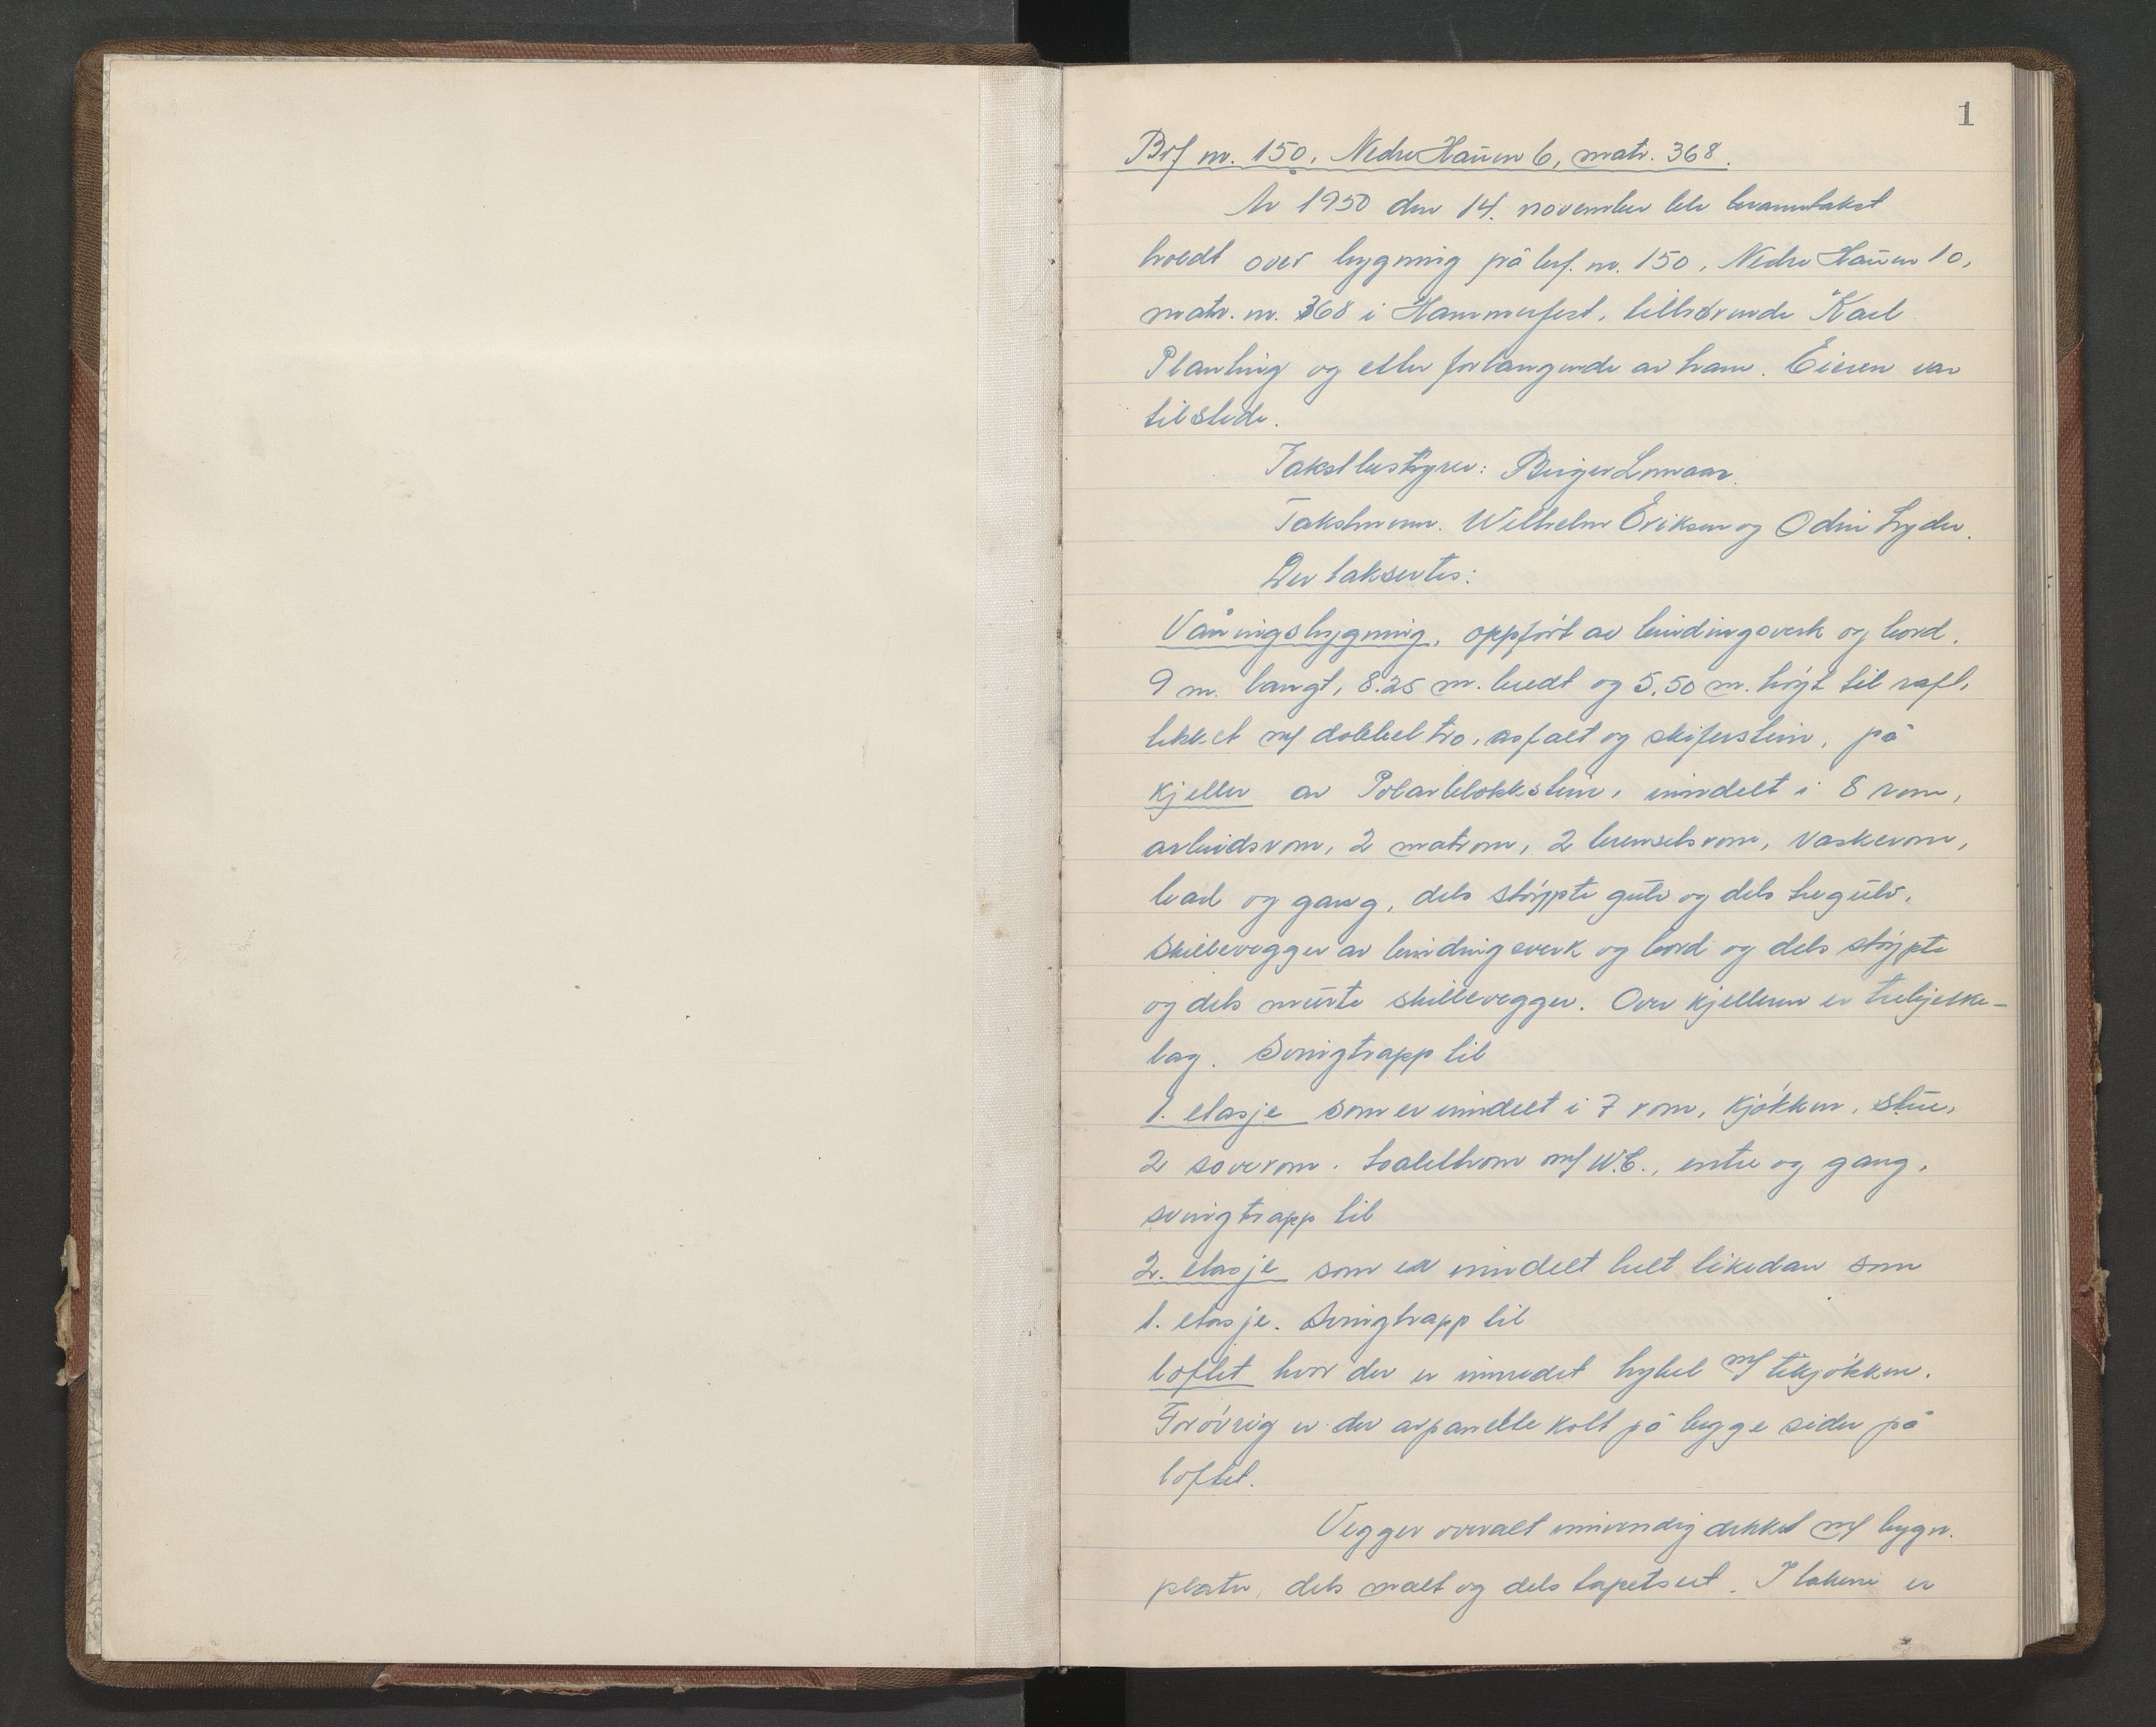 1
Brf nr. 150, Nedre Hauen 6, matr. 368.
År 1950 den 14. november ble branntakst
holdt over bygning på brf. nr. 150, Nedre Hauen 10,
matr. nr. 368 i Hammerfest, tilhørende Karl
Planting og etter forlangende av ham. Eieren var
tilstede.
Takstbestyrer: Birger Lomaas.
Takstmenn. Wilhelm Eriksen og Odin Lyder.
Der taksertes:
Våningsbygning, oppført av bindingsverk og bord.
9 m. langt, 8.25 m. bredt og 5.50 m. høgt til raft,
tekket m/ dobbel tro, asfalt og skiferstein, på
kjeller av Polarblokkstein, inndelt i 8 rom,
arbeidsrom, 2 matrom, 2 brenselsrom, vaskerom,
bad og gang, dels støypte gulv og dels tregulv.
Skillevegger av bindingsverk og bord og dels støypte
og dels murte skillevegger. Over kjelleren er trebjelke-
lag. Svingtrapp til
1. etasje som er inndelt i 7 rom, kjøkken, stue,
2 soverom. toalettrom m/ W.C., entre og gang.
svingtrapp til
2. etasje som er inndelt helt likedan som
1. etasje. Svingtrapp til
loftet hvor der er innredet hybel m/ tekjøkken.
Forøvrig er der avpanelte kott på begge sider på
loftet.
Vegger overalt innvendig dekket m/ bygn.
plater, dels malt og dels tapetsert. I takene er